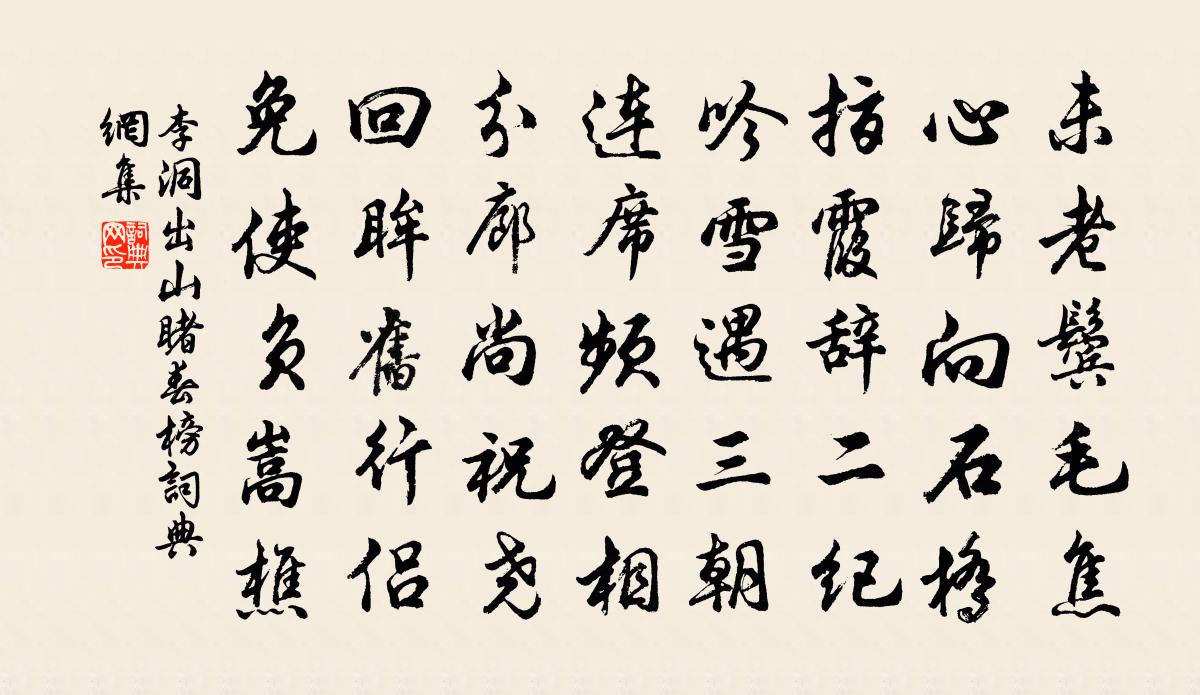 未老鬓毛焦
心歸向石橋
指霞辞二纪
吟雪遇三朝
連席頻登相
分廊尚祝尧
回眸舊行侣
免使负嵩樵
李洞出山睹春榜詞典
網集
詞典
网印